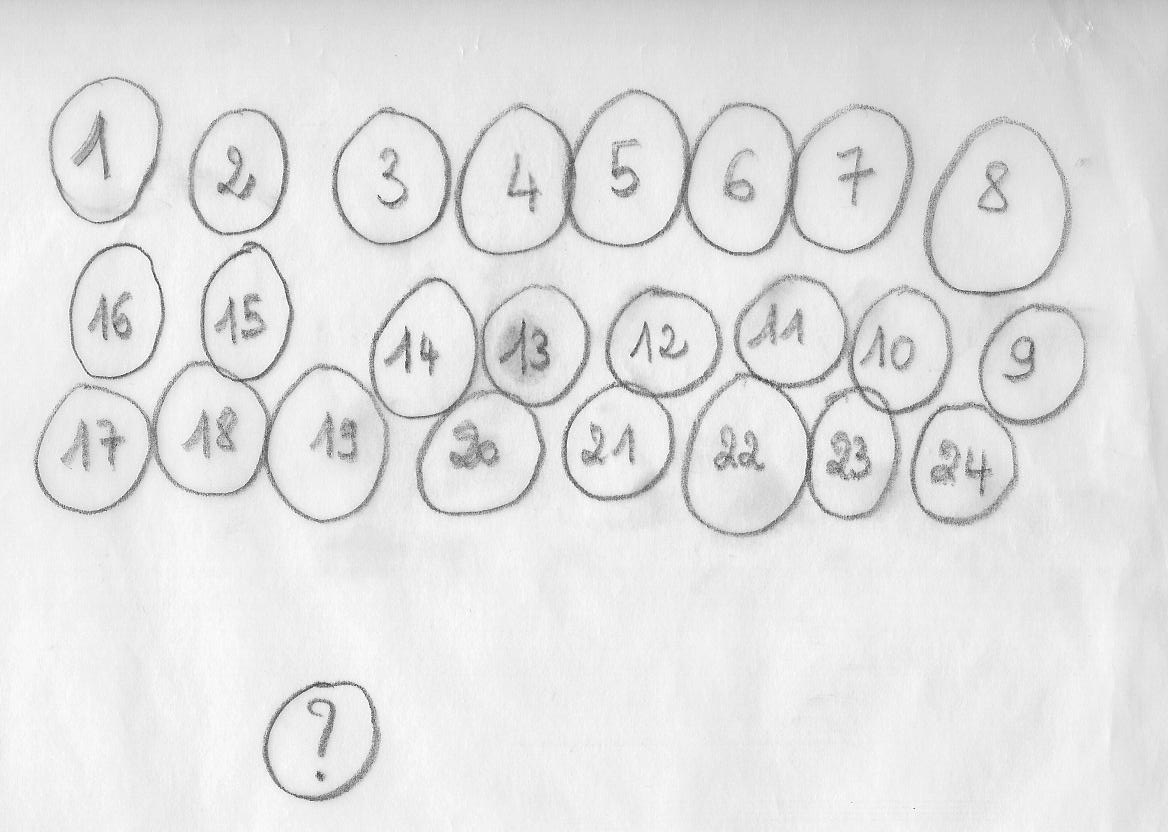 1 2 3 4 5 6 7 8
16 15 14 13 12 11 10 9
17 18 19 20 21 22 23 24
?